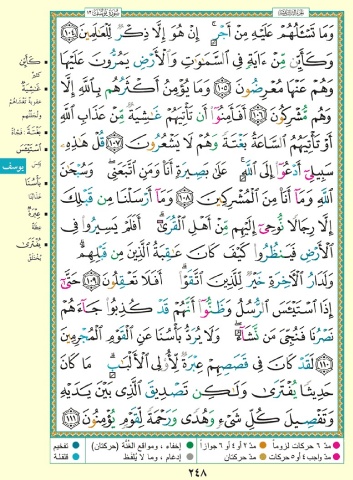 سُورَةُ يُوسُفَ ١٢
وَمَا تَسْـَٔلُهُمْ عَلَيْهِ مِنْ أَجْرٍ ۚ إِنْ هُوَ إِلَّا ذِكْرٌ لِّلْعَٰلَمِينَ ١٠٤
وَكَأَيِّن مِّنْ ءَايَةٍ فِى ٱلسَّمَٰوَٰتِ وَٱلْأَرْضِ يَمُرُّونَ عَلَيْهَا
وَهُمْ عَنْهَا مُعْرِضُونَ ١٠٥ وَمَا يُؤْمِنُ أَكْثَرُهُم بِٱللَّهِ إِلَّا
وَهُم مُّشْرِكُونَ ١٠٦ أَفَأَمِنُوٓا۟ أَن تَأْتِيَهُمْ غَٰشِيَةٌ مِّنْ عَذَابِ ٱللَّهِ
أَوْ تَأْتِيَهُمُ ٱلسَّاعَةُ بَغْتَةً وَهُمْ لَا يَشْعُرُونَ ١٠٧ قُلْ هَٰذِهِۦ
سَبِيلِىٓ أَدْعُوٓا۟ إِلَى ٱللَّهِ ۚ عَلَىٰ بَصِيرَةٍ أَنَا۠ وَمَنِ ٱتَّبَعَنِى ۖ وَسُبْحَٰنَ
ٱللَّهِ وَمَآ أَنَا۠ مِنَ ٱلْمُشْرِكِينَ ١٠٨ وَمَآ أَرْسَلْنَا مِن قَبْلِكَ
إِلَّا رِجَالًا نُّوحِىٓ إِلَيْهِم مِّنْ أَهْلِ ٱلْقُرَىٰٓ ۗ أَفَلَمْ يَسِيرُوا۟ فِى
ٱلْأَرْضِ فَيَنظُرُوا۟ كَيْفَ كَانَ عَٰقِبَةُ ٱلَّذِينَ مِن قَبْلِهِمْ ۗ
وَلَدَارُ ٱلْءَاخِرَةِ خَيْرٌ لِّلَّذِينَ ٱتَّقَوْا۟ ۗ أَفَلَا تَعْقِلُونَ ١٠٩ حَتَّىٰٓ
إِذَا ٱسْتَيْـَٔسَ ٱلرُّسُلُ وَظَنُّوٓا۟ أَنَّهُمْ قَدْ كُذِبُوا۟ جَآءَهُمْ
نَصْرُنَا فَنُجِّىَ مَن نَّشَآءُ ۖ وَلَا يُرَدُّ بَأْسُنَا عَنِ ٱلْقَوْمِ ٱلْمُجْرِمِينَ
١١٠ لَقَدْ كَانَ فِى قَصَصِهِمْ عِبْرَةٌ لِّأُو۟لِى ٱلْأَلْبَٰبِ ۗ مَا كَانَ
حَدِيثًا يُفْتَرَىٰ وَلَٰكِن تَصْدِيقَ ٱلَّذِى بَيْنَ يَدَيْهِ
وَتَفْصِيلَ كُلِّ شَىْءٍ وَهُدًى وَرَحْمَةً لِّقَوْمٍ يُؤْمِنُونَ ١١١
كَأَيِّن
غَٰشِيَةٌ
بَغْتَةً
فجأة
ٱسْتَيْـَٔسَ
يوسف
بَأْسُنَا
عذابنا
عِبْرَةٌ
عظة
يُفْتَرَىٰ
يختلق
مدّ ٦ حركات لزوماً
مدّ ٢ أو ٤ أو ٦ جوازاً
إخفاء، ومواقع الغُنَّة (حركتان)
تفخيم
مدّ واجب ٤ أو ٥ حركات
مدّ حركتان
إدغام، وما لا يُلفظ
قلقلة
٢٤٨